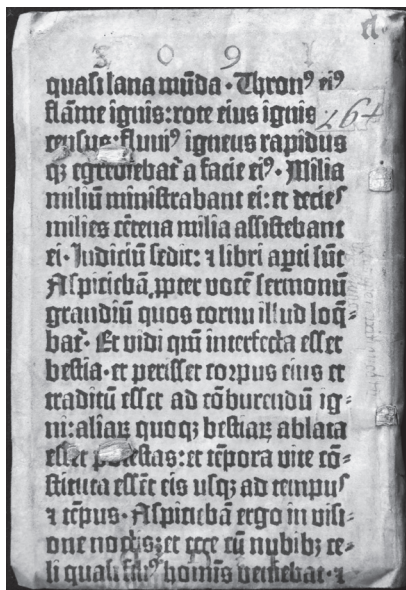 3 0 9 1
rl.
quasi lana mūda · Thronꝰ eiꝰ
flāme ignis: rote eius ignis
264
census · fluuiꝰ igneus rapidus
qꝫ egrediebat᷑ a facie eiꝰ · Milia
miliū ministrabant ei: et decieˢ
milies cētena milia assistebant
ei · Iudiciū sedit: ⁊ libri apti sūt
Aspiciebā ꝓpter vocē sermonū
grandiū quos cornu illud loq̄⸗
bat᷑ · Et vidi qm̄ interfecta esset
bestia · et perisset corpus eius et
traditū esset ad cōburendū ig⸗
ni: aliaꝝ quoqꝫ bestiaꝝ ablata
esset potestas: et tēpora vite cō⸗
stituta essēt eis usqꝫ ad tempuˢ
⁊ tēpus · Aspiciebā ergo in visi⸗
one noctis: et ecce cū nubibꝫ ce⸗
li quasi filiꝰ hominis veniebat · ⁊